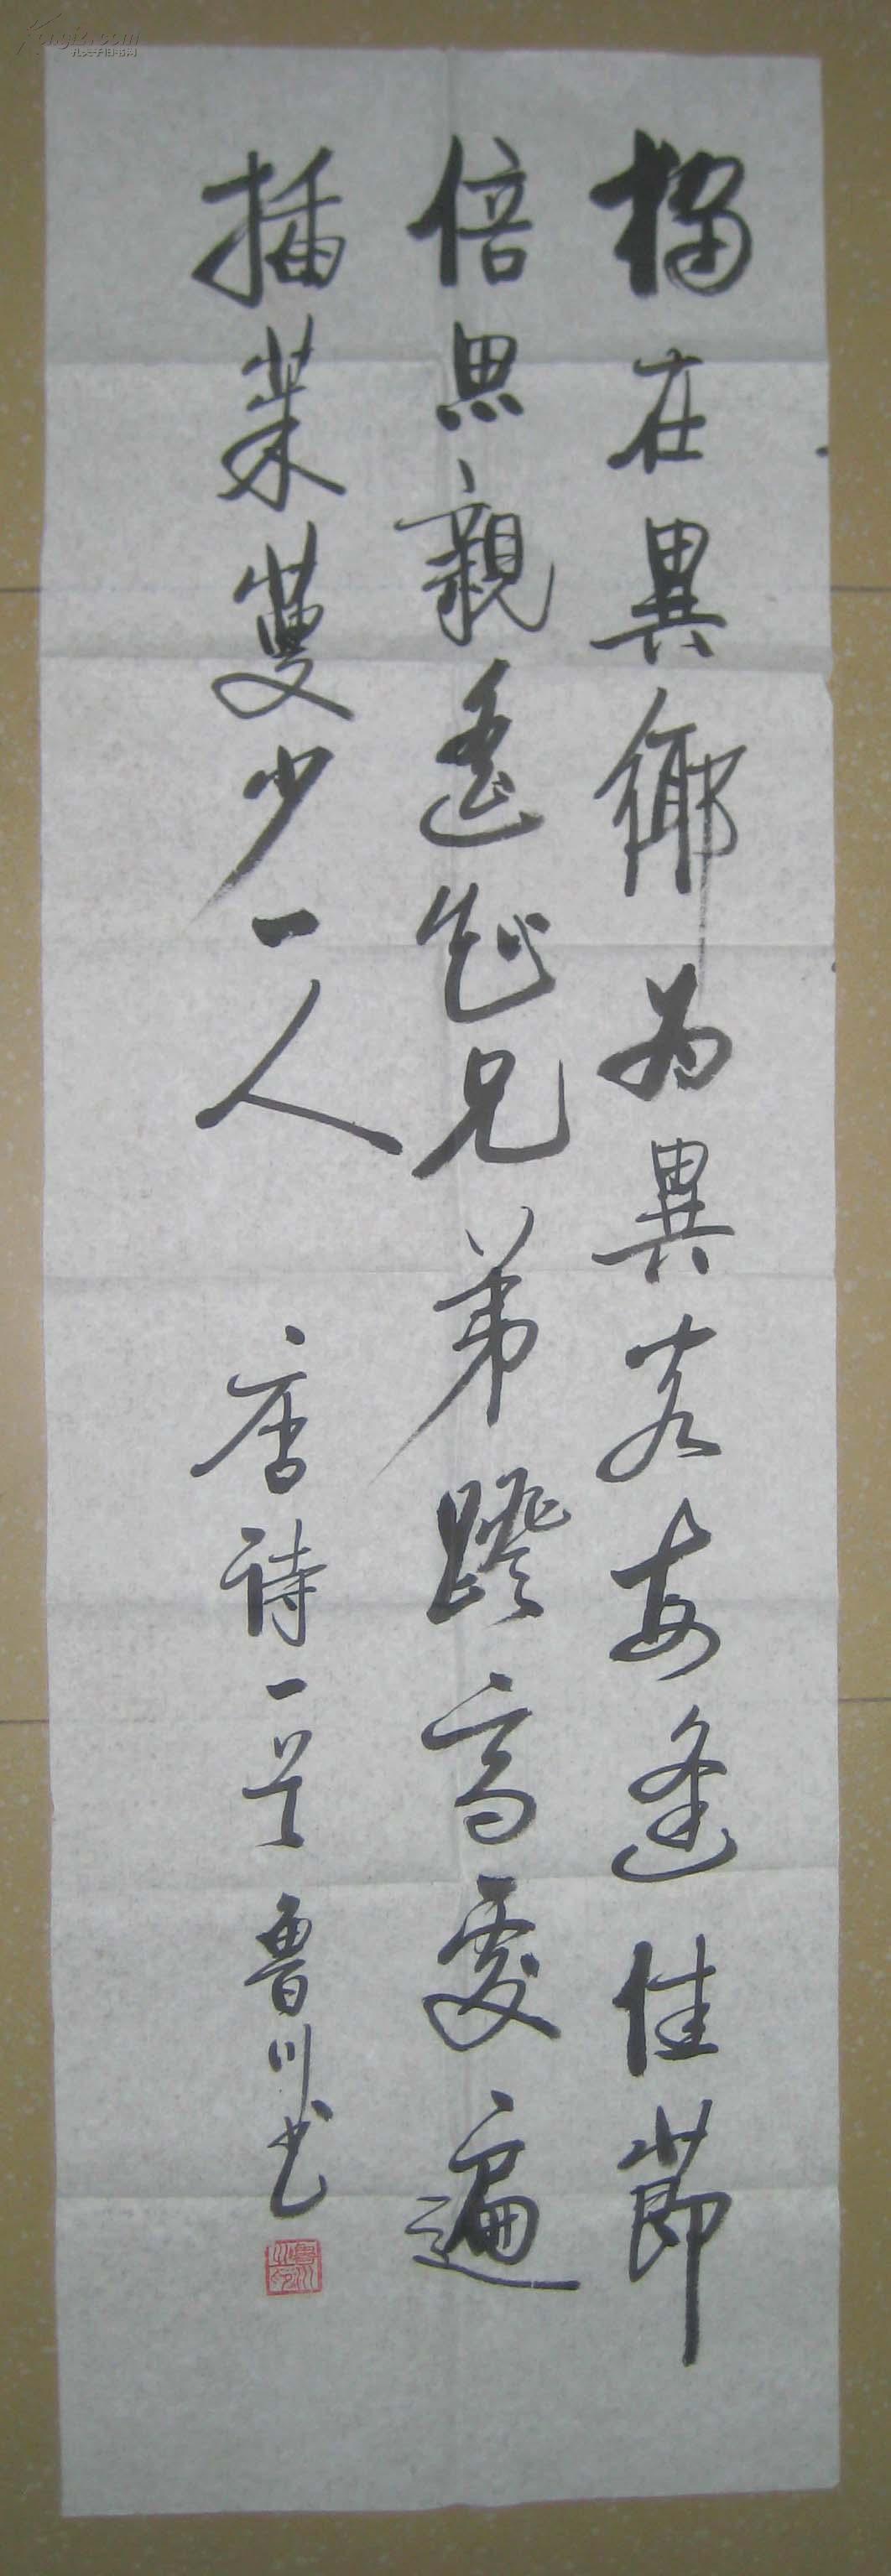 獨在異鄉为異客每逢佳節
倍思親遙知兄弟蹬高處遍
插茱萸少一人
唐詩一首 魯川书
魯川之印
Kongfz.com
孔夫子旧书网